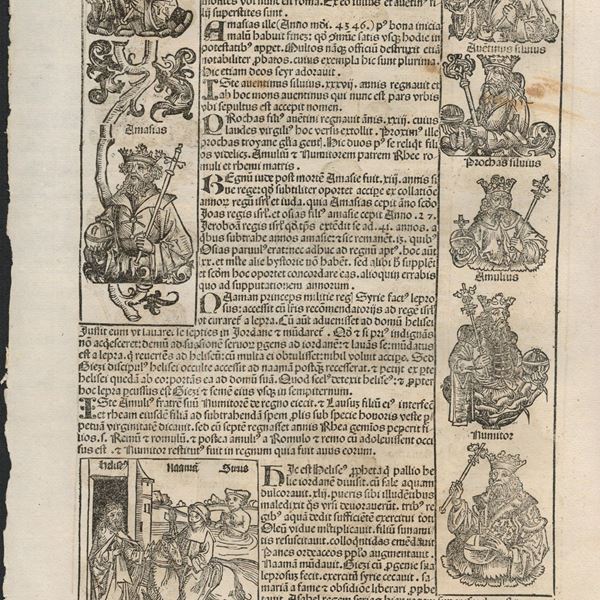 montes vbi nunc est roma. Ex eo iulius et auētin⁹ fi
lij superstites sunt.
Amasias ille (Anno mōi. 4346.) p⁹ bona inicia
malū habuit finez: qđ
potestatib⁹ appet. Multos nāqȝ officiū destruxit etiā
notabiliter ꝓbatos. cuius exempla hic sunt plurima.
Hic etiam deos seyr adorauit.
ISte auentinus siluius. xxxvij. annis regnauit et
ab hoc mons auentinus qui nunc est pars vrbis
vbi sepultus est accepit nomen.
PRochas fili⁹ auētini regnauit ānis. xxij. cuius
laudes virgili⁹ hoc versu extollit. Proxim⁹ ille
prochas troyane glīa gent⁹. Hic duos p⁹ se reliqt filios
videlicz. Amuliū ⁊ Numitorem patrem Rhee ro
muli et rhemi matris.
REgnū iude post mortē Amasie fuit. xiij. annis si
ne rege: qđ subtiliter oportet accipe ex collatiōe
annorȝ regū isrl' et iuda. quia Amasias cepit āno scđo
Joas regis isrl' et osias fili⁹ amasie cepit Anno. 27.
Jeroboā regis isrl' extēdit se ad. 41. annos. a
qbus subtrahe annos amasie: ⁊ sic remanēt. 13. quib⁹
Osias paruul⁹ erat: nec adhuc ad regnū apt⁹. hoc aūt
xx. et iste alie hystorie nō habēt. sed alibi h̄ supplēt
et scđm hoc oportet concordare eas. alioquin errabis
quo ad supputationem annorum.
NAaman princeps militie reg⁹ Syrie fact⁹ lepro
sus: accessit cū lr̄is recomēdatorijs ad regē isrl'
vt curaret⁹ a lepra. Cū aūt aduenisset ad domū helisei
Jussit eum vt lauaret se septies in Jordane ⁊ mūdaret⁹. Qđ ⁊ si pri⁹ indignās
nō acqesceret: demū ad suggestionē seruorȝ pgens ad iordanē: ⁊ lauās se: mūdatus
est a lepra. q̄ reuertēs ad heliseū: cū multa ei obtulisset: nihil voluit accipe. Sed
Giezi discipul⁹ helisei occulte accessit ad naamā postqȝ recesserat. ⁊ petijt ex pte
helisei quedā ab eo: portās ea ad domū suā. Quod scel⁹ detexit helise⁹: ⁊ ꝓpter
hoc lepra pcussus est Giezi ⁊ semē eius vsqȝ in sempiternum.
ISte Amuli⁹ fratrē suū Numitorē de regno eiecit. ⁊ Lausuȝ filiū ei⁹ interfecit
et rheam eiusdē filiā ad subtrahendā spem ꝓlis sub specie honoris veste p
petua virginitate dicauit. sed cū septē regnasset annis Rhea geminos peperit fi
lios. s. Remū ⁊ romulū. ⁊ postea amuli⁹ a Romulo ⁊ remo cū adoleuissent occi
sus est. ⁊ Numitor restitut⁹ fuit in regnum quia fuit auus eorum.
Amasias
Auētinus siluius
Prochas siluius
Amulius
Numitor
helise⁹
Naamā
Sirus
HIc est Helise⁹ ꝓpheta: q̄ pallio he
lie iordanē diuisit. cū sale aquam
dulcorauit. xlij. pueris sibi illudētibus
maledixit q̄s vrsi deuorauerūt. trib⁹ re
gib⁹ aquā dedit sufficiētē exercitui toti
Oleū vidue multiplicauit. filiū sunami
tis resuscitauit. colloqntidas emēdauit
Panes ordeaceos pplo augmentauit.
Naamā mūdauit. Giezi cū ꝓgenie sua
leprosuȝ fecit. exercitū syrie cecauit. sa
mariā a fame ⁊ obsidiōe liberari ꝓphe
tauit.